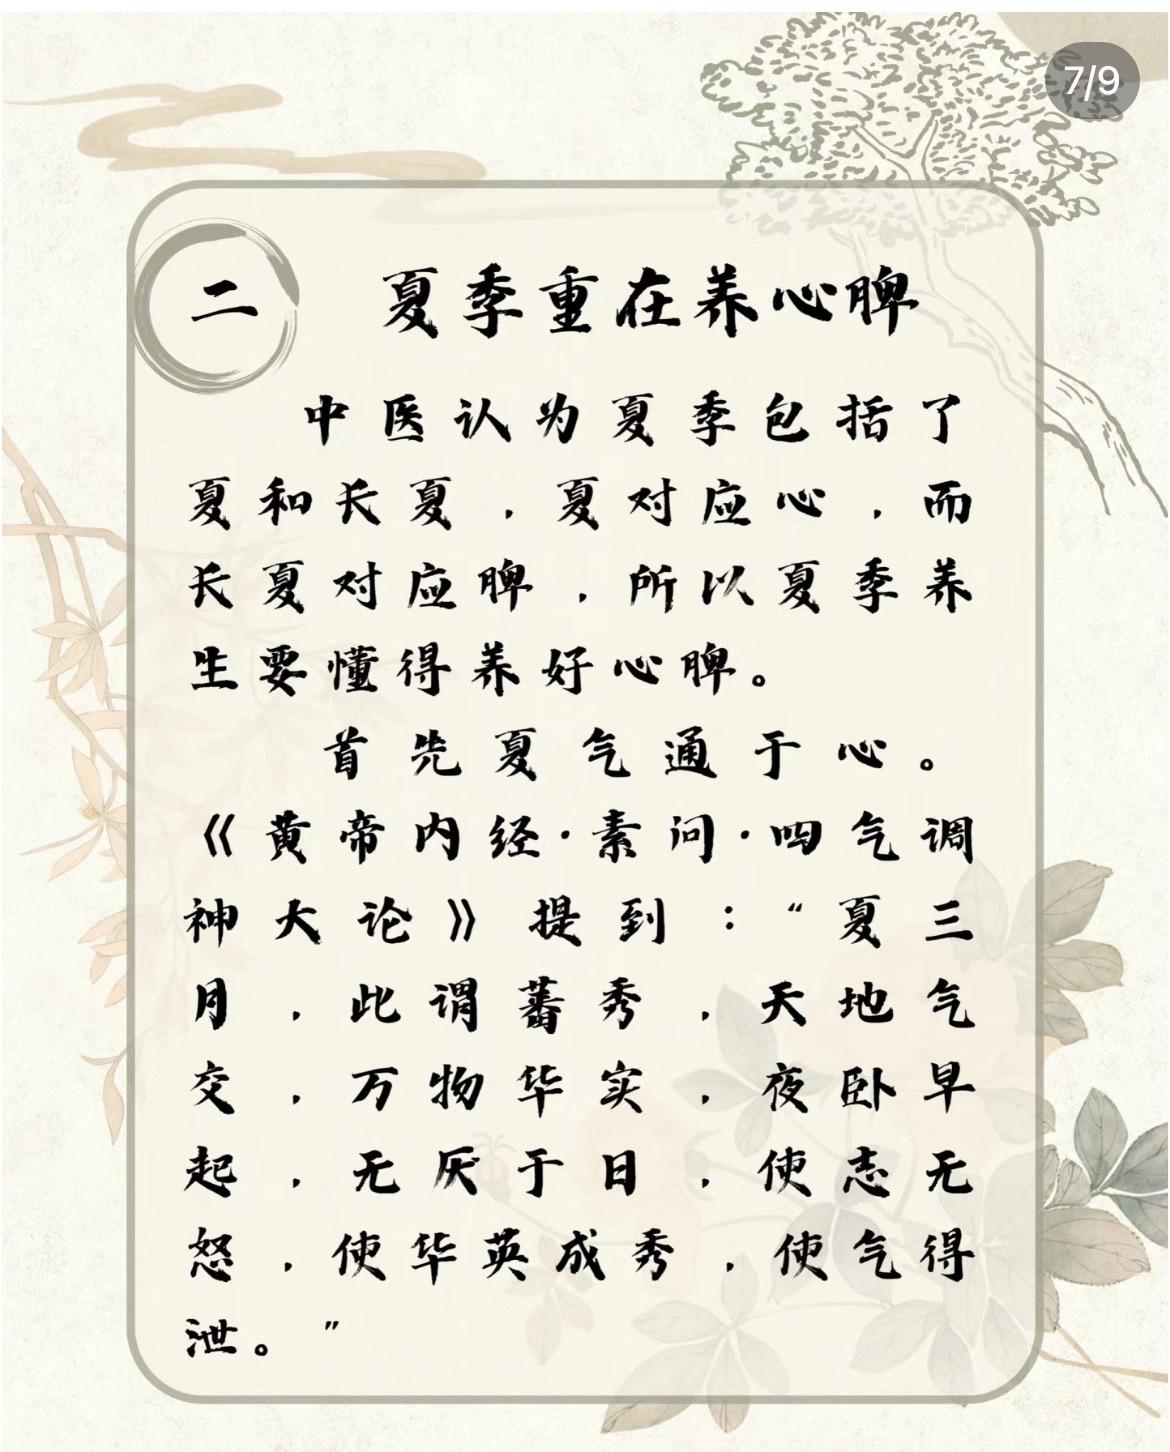 7/9
二 夏季重在养心脾
中医认为夏季包括了
夏和长夏，夏对应心，而
长夏对应脾，所以夏季养
生要懂得养好心脾。
首先夏气通于心。
《黄帝内经·素问·四气调
神大论》提到：“夏三
月，此谓蕃秀，天地气
交，万物华实，夜卧早
起，无厌于日，使志无
怒，使华英成秀，使气得
泄。”